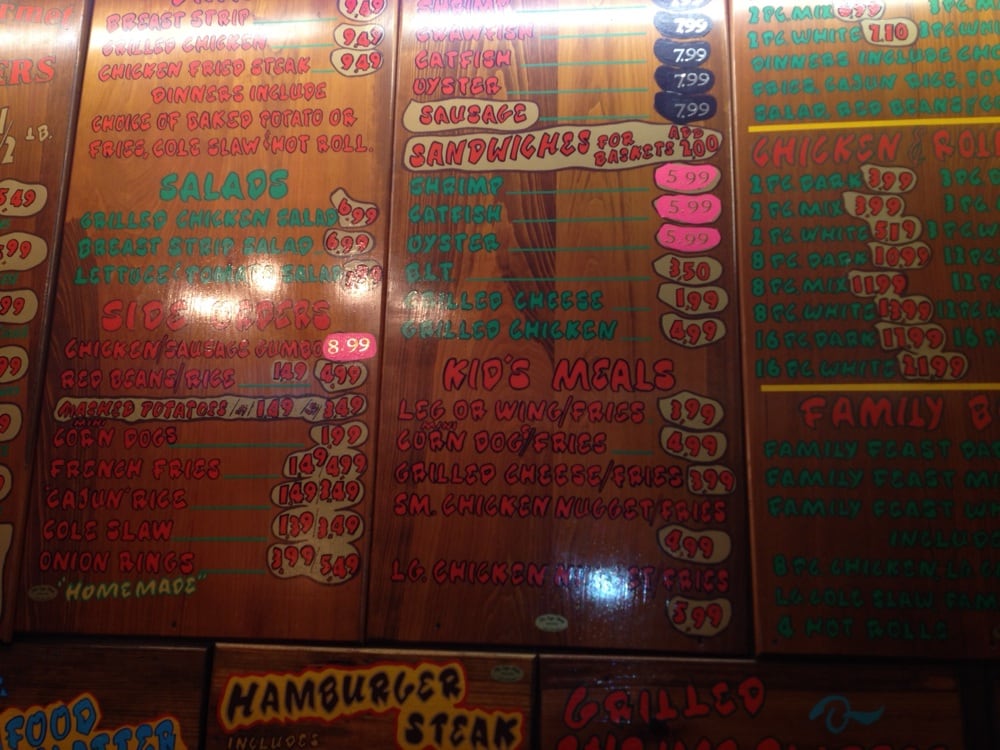 ERS
1/2 LB.
5.49
.99
99
99
BREAST STRIP 9.49
GRILLED CHICKEN 9.49
CHICKEN FRIED STEAK 9.49
DINNERS INCLUDE
CHOICE OF BAKED POTATO OR
FRIES, COLE SLAW & HOT ROLL.
SALADS
GRILLED CHICKEN SALAD 6.99
BREAST STRIP SALAD 6.99
LETTUCE & TOMATO SALAD
SIDE ORDERS
CHICKEN/SAUSAGE GUMBO 8.99
RED BEANS/RICE 1.49 4.99
MASHED POTATOES 1.49 3.49
MINI
CORN DOGS 1.99
FRENCH FRIES 1.49 4.99
"CAJUN" RICE 1.49 3.49
COLE SLAW 1.39 3.49
ONION RINGS 3.99 5.49
"HOMEMADE"
SHRIMP 7.99
CRAWFISH 7.99
CATFISH 7.99
OYSTER 7.99
SAUSAGE 7.99
SANDWICHES FOR BASKETS ADD 2.00
SHRIMP 5.99
CATFISH 5.99
OYSTER 5.99
BLT 3.50
GRILLED CHEESE 1.99
GRILLED CHICKEN 4.99
KID'S MEALS
LEG OR WING/FRIES 3.99
MINI
CORN DOG/FRIES 4.99
GRILLED CHEESE/FRIES 3.99
SM. CHICKEN NUGGET FRIES
4.99
LG. CHICKEN NUGGET/FRIES
5.99
2 PC. MIX 6.99
2 PC. WHITE 7.10 3 PC. WHI
DINNERS INCLUDE
FRIES, CAJUN RICE,
SALAD, RED BEANS
CHICKEN & ROLL
2 PC. DARK 3.99 3 P
2 PC. MIX 3.99 3 P
2 PC. WHITE 5.19
8 PC. DARK 10.99 12 PC
8 PC. MIX 11.99 12 P
8 PC. WHITE 13.99 12 PC
16 PC. DARK 16 P
16 PC. WHITE 21.99
FAMILY B
FAMILY FEAST DA
FAMILY FEAST M
FAMILY FEAST WH
INCLUDE
8 PC. CHICKEN, LG.
LG. COLE SLAW,
4 HOT ROLLS
FOOD
HAMBURGER
STEAK
INCLUDES
GRILLED